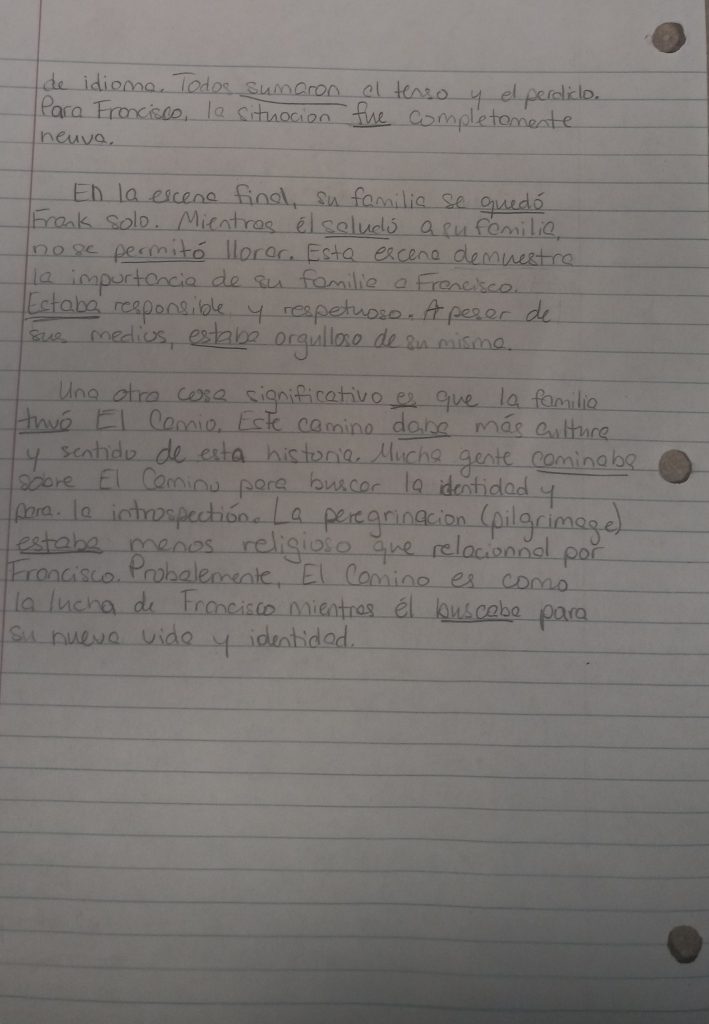 de idioma. Todos sumaron el tenso y el perdido.
Para Francisco, la situacion fue completamente
neuva.
En la escena final, su familia se quedó
Frank solo. Mientras él saludó a su familia,
no se permitó llorar. Esta escena demuestra
la importancia de su familia a Francisco.
Estaba responsible y respetuoso. A pesar de
sus medios, estaba orgulloso de su misma.
Una otra cosa significativo es que la familia
tuvó El Camio. Este camino daba más cultura
y sentido de esta historia. Mucha gente caminaba
sobre El Camino para buscar la identidad y
para. la introspectión. La peregrinacion (pilgrimage)
estaba menos religioso que relacionnal por
Francisco. Probalemente, El Camino es como
la lucha de Francisco mientras él buscaba para
su nueva vida y identidad.